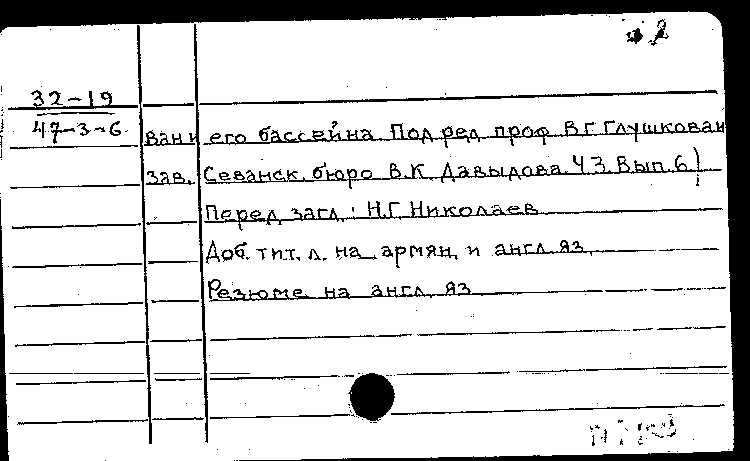 2
32-19
47-3-6
ван и его бассейна. Под ред. проф. В.Г. Глушкова и
зав. Севанск. бюро В.К. Давыдова. Ч 3. Вып. 6)
Перед загл.: Н.Г. Николаев
Доб. тит. л. на армян. и англ. яз.
Резюме на англ. яз